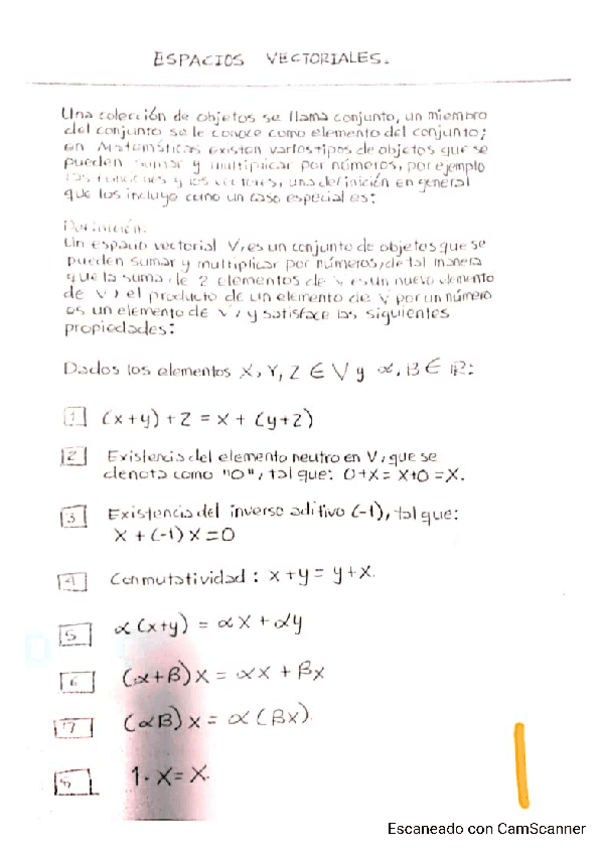 ESPACIOS VECTORIALES.
Una colección de objetos se llama conjunto, un miembro
del conjunto se le conoce como elemento del conjunto;
en Matemáticas existen varios tipos de objetos que se
pueden sumar y multiplicar por números, por ejemplo
las funciones y los vectores, una definición en general
que los incluye como un caso especial es:
Definición:
Un espacio vectorial V, es un conjunto de objetos que se
pueden sumar y multiplicar por números, de tal manera
que la suma de 2 elementos de V es un nuevo elemento
de V, el producto de un elemento de V por un número
es un elemento de V, y satisface las siguientes
propiedades:
Dados los elementos X, Y, Z ∈ V y α, B ∈ ℝ:
1 (x+y) + z = x + (y+z)
2 Existencia del elemento neutro en V, que se
denota como "0", tal que: 0+x = x+0 = x.
3 Existencia del inverso aditivo (-1), tal que:
x + (-1) x = 0
4 Conmutatividad: x+y = y+x.
5 α (x+y) = αx + αy
6 (α+β) x = αx + βx
7 (αB) x = α (βx)
8 1· x = x.
Escaneado con CamScanner